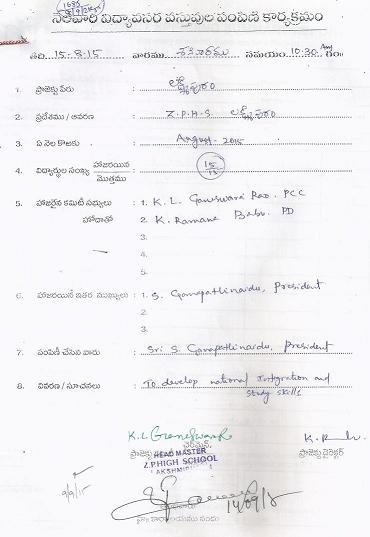 నెలవారి విద్యావసర వస్తువుల పంపిణి కార్యక్రమం
తేది. 15-8-15 వారము శనివారము సమయం 10.30 గం
1. ప్రాజెక్టు పేరు : లక్ష్మీపురం
2. ప్రదేశము / ఆవరణ : Z.P.H.S. లక్ష్మీపురం
3. ఏ నెల కొఱకు : August - 2015
4. విద్యార్థుల సంఖ్య హాజరయిన : 15
మొత్తము
5. హాజరైన కమిటీ సభ్యులు : 1. K. L. Ganeswara Rao. PCC
హోదాతో 2. K. Ramana Babu. PD
3.
4.
5.
6. హాజరయిన ఇతర ముఖ్యులు : 1. S. Ganapathinaidu, President
2.
3.
7. పంపిణీ చేసిన వారు : Sri S. Ganapathinaidu, President
8. వివరణ / సూచనలు : To develop national Integration and
Study skills
K.L.Ganeswara
ప్రాజెక్టు చైర్మన్, ప్రాజెక్టు డైరెక్టర్
HEAD MASTER
Z.P.HIGH SCHOOL
9/9/15
14/09/15